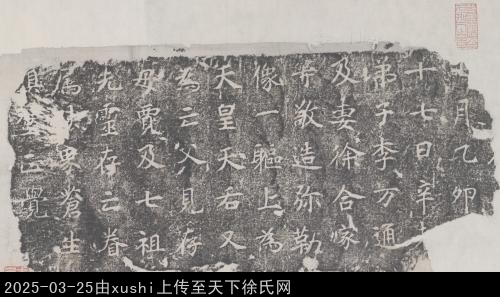 月乙卯
十七日辛
弟子李万通
及妻徐合家
等敬造弥勒
像一軀上為
天皇天后又
為亡父見存
母及七祖
先靈存亡眷
属法界蒼生
正覺
2025-03-25由xushi上传至天下徐氏网